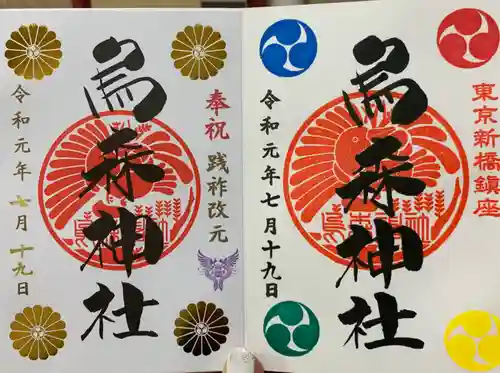 東京新橋鎮座
烏森神社
令和元年七月十九日
奉祝 践祚改元
烏森神社
令和元年 七月 十九日